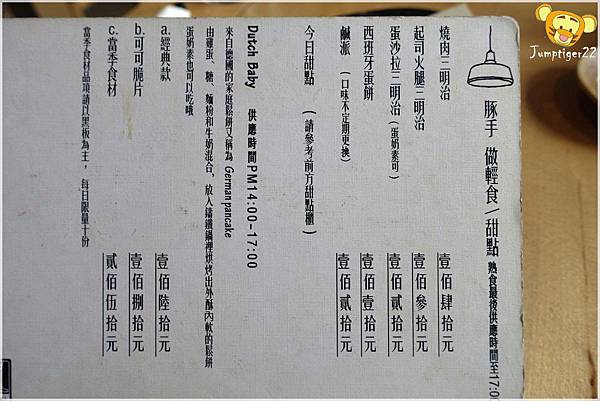 Jumptiger22
豚手 做輕食/甜點 熟食最後供應時間至17:00
燒肉三明治 壹佰肆拾元
起司火腿三明治 壹佰參拾元
蛋沙拉三明治(蛋奶素可) 壹佰貳拾元
西班牙蛋餅 壹佰壹拾元
鹹派 (口味不定期更換) 壹佰貳拾元
今日甜點 (請參考前方甜點櫃)
Dutch Baby 供應時間PM14:00-17:00
來自德國的家庭鬆餅又稱為 German pancake
由雞蛋、糖、麵粉和牛奶混合，放入鑄鐵鍋裡烘烤出外酥內軟的鬆餅
蛋奶素也可以吃哦
a.經典款 壹佰陸拾元
b.可可脆片 壹佰捌拾元
c.當季食材 貳佰伍拾元
當季食材品項請以黑板為主， 每日限量十份